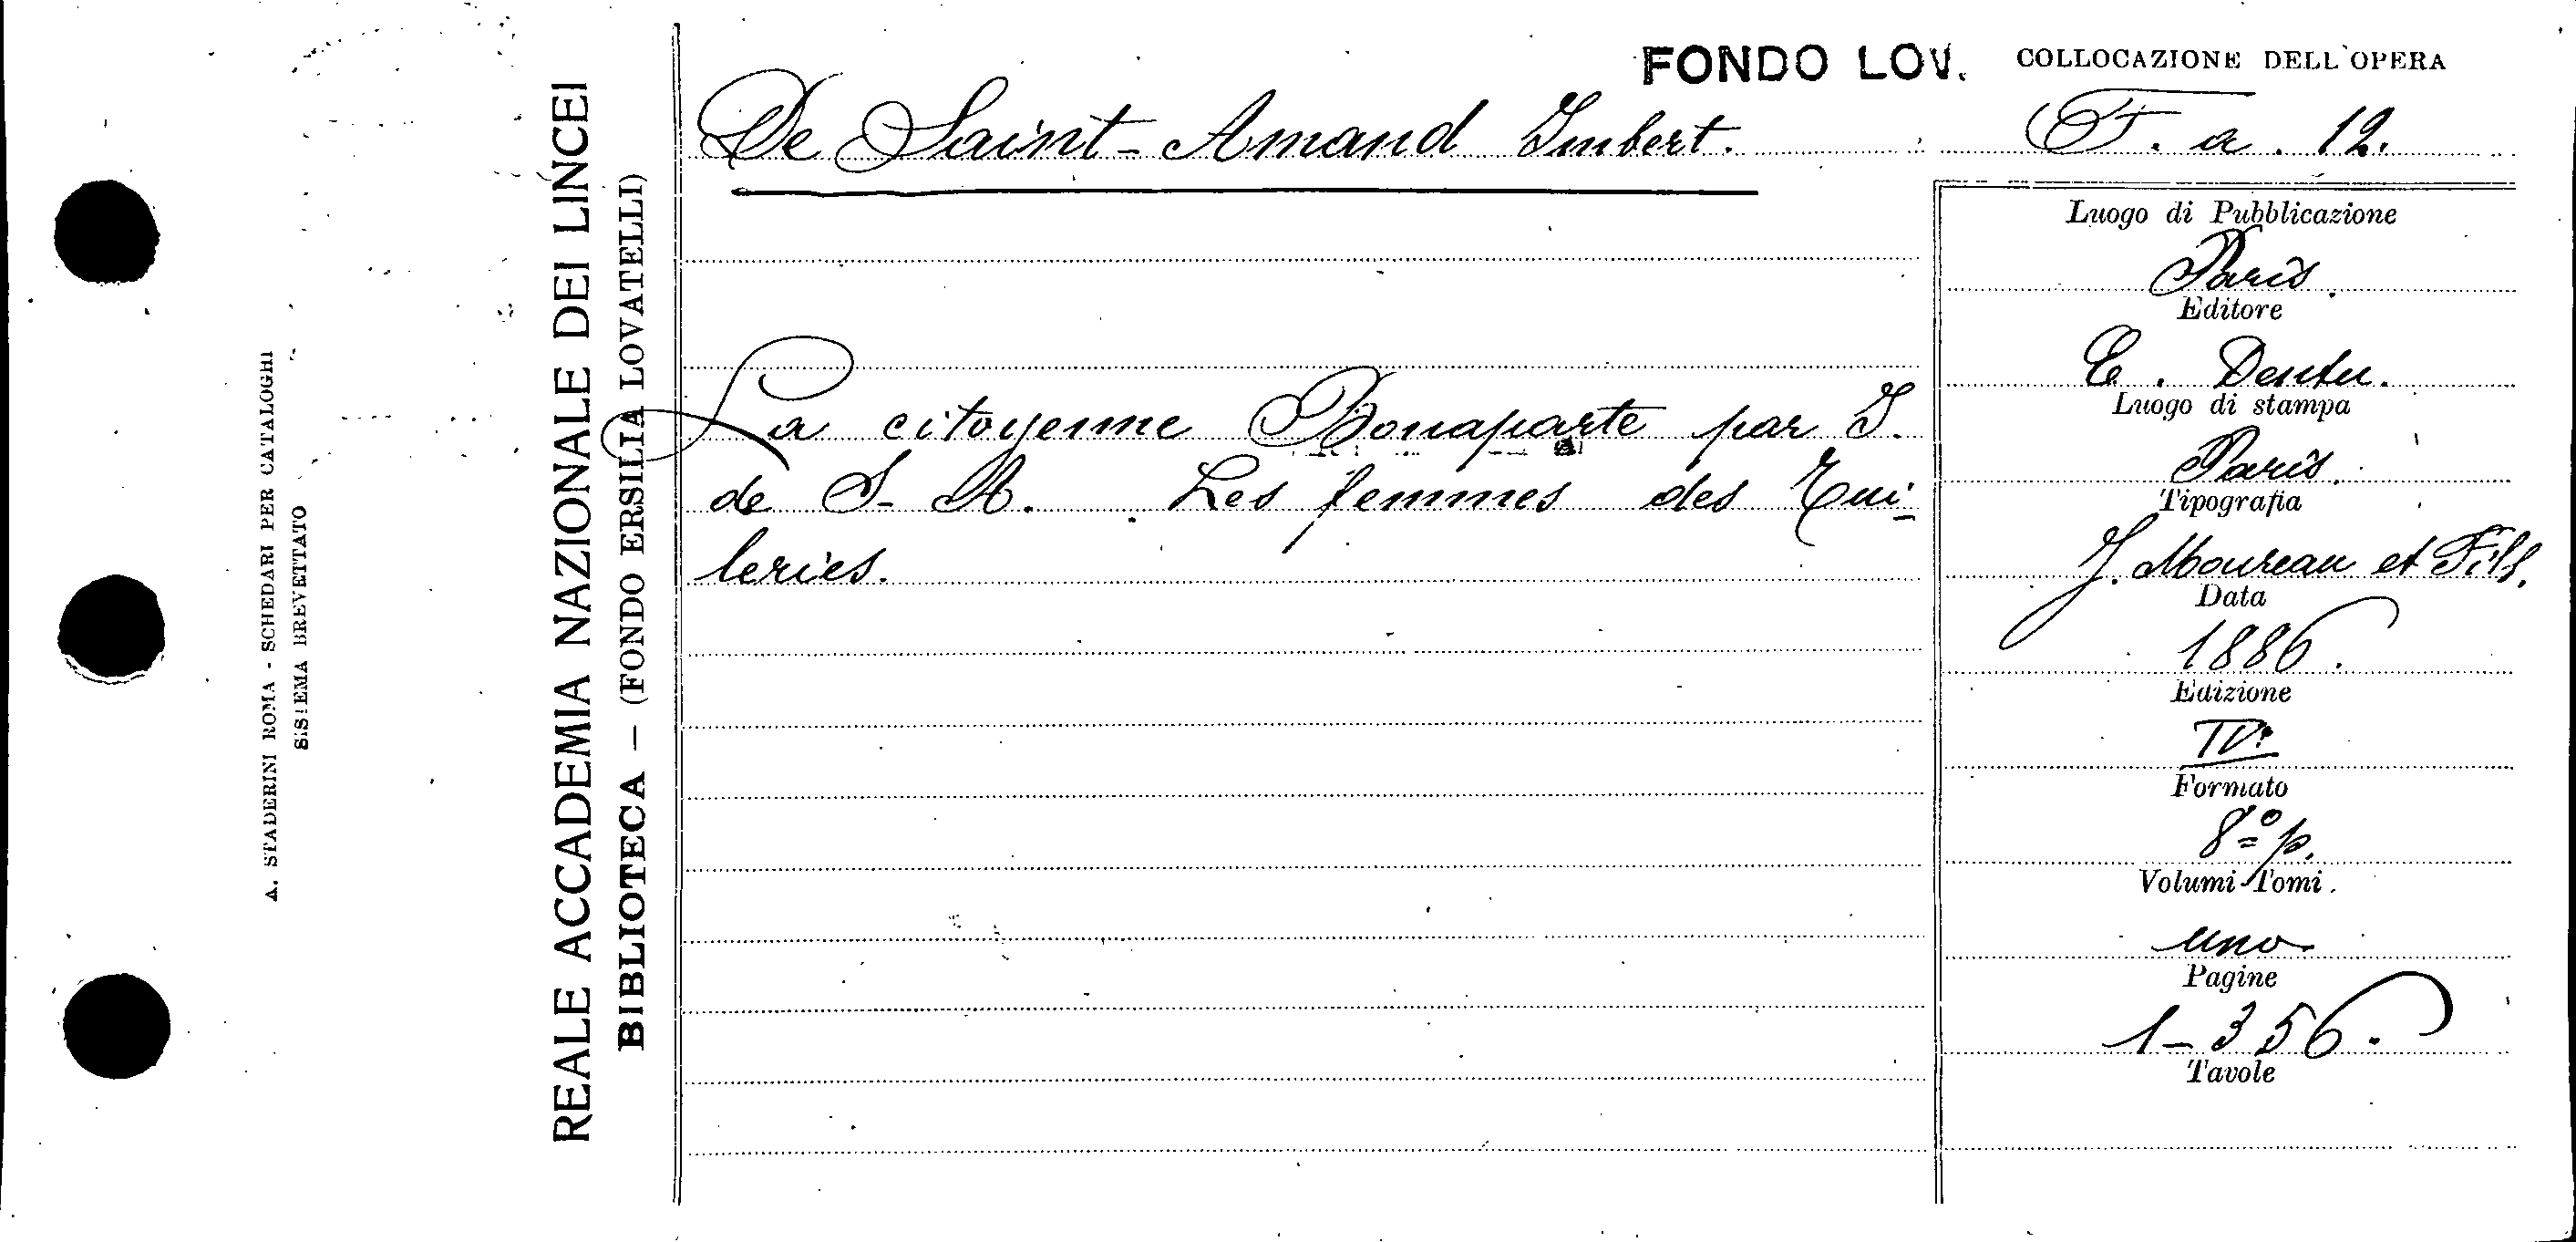 FONDO LOV. COLLOCAZIONE DELL'OPERA
De Saint-Amand Imbert. F. a. 12.
La citoyenne Bonaparte par I.
de S-A. Les femmes des Tui-
leries.
Luogo di Pubblicazione
Paris.
Editore
E. Dentu.
Luogo di stampa
Paris.
Tipografia
J. Moureau et Fils.
Data
1886.
Edizione
IVª
Formato
8º p.
Volumi-Tomi.
uno
Pagine
1-356.
Tavole
REALE ACCADEMIA NAZIONALE DEI LINCEI
BIBLIOTECA — (FONDO ERSILIA LOVATELLI)
A. STADERINI ROMA - SCHEDARI PER CATALOGHI
SISTEMA BREVETTATO